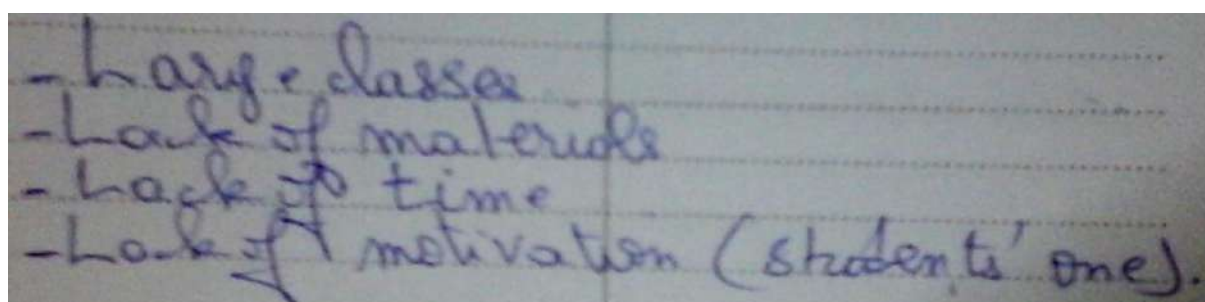 - Large classes
- Lack of materials
- Lack of time
- Lack of motivation (students' one).